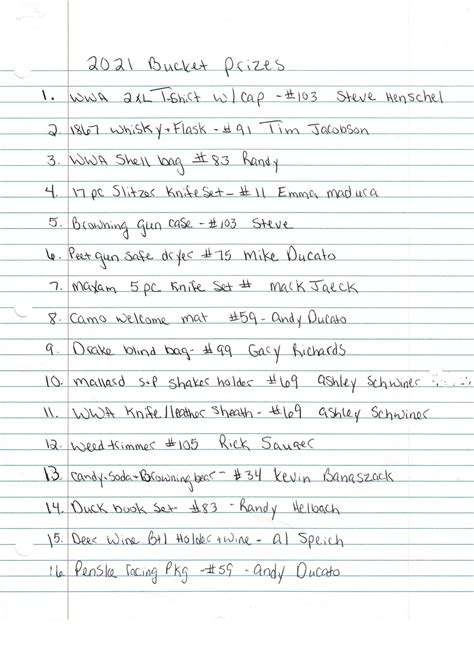 2021 Bucket Prizes
1. WWA 2XL T-Shirt w/cap - #103 Steve Henschel
2. 1867 Whisky + Flask - #91 Tim Jacobson
3. WWA Shell bag #83 Randy
4. 17 pc Slitzer Knife Set - #11 Emma madura
5. Browning gun case - #103 Steve
6. Peet gun safe dryer #75 Mike Ducato
7. maxam 5 pc Knife Set # mack Jaeck
8. Camo welcome mat #59 - Andy Ducato
9. Drake blind bag - #99 Gary Richards
10. mallard s+p shaker holder #69 ashley Schwiner
11. WWA Knife/leather Sheath - #69 ashley Schwiner
12. weed trimmer #105 Rick Sauger
13. candy+soda+Browning bear - #34 Kevin Banaszack
14. Duck book Set - #83 - Randy Helbach
15. Deer Wine Btl Holder + wine - al Speich
16 Penske racing Pkg - #59 - andy Ducato